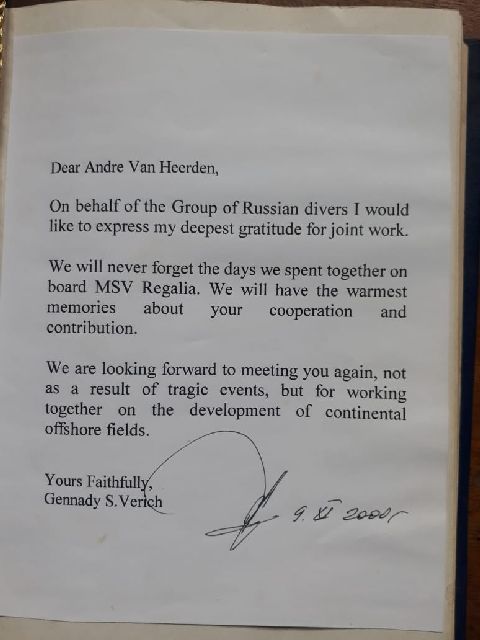 Dear Andre Van Heerden,
On behalf of the Group of Russian divers I would
like to express my deepest gratitude for joint work.
We will never forget the days we spent together on
board MSV Regalia. We will have the warmest
memories about your cooperation and
contribution.
We are looking forward to meeting you again, not
as a result of tragic events, but for working
together on the development of continental
offshore fields.
Yours Faithfully,
Gennady S.Verich
9. XI 2000г